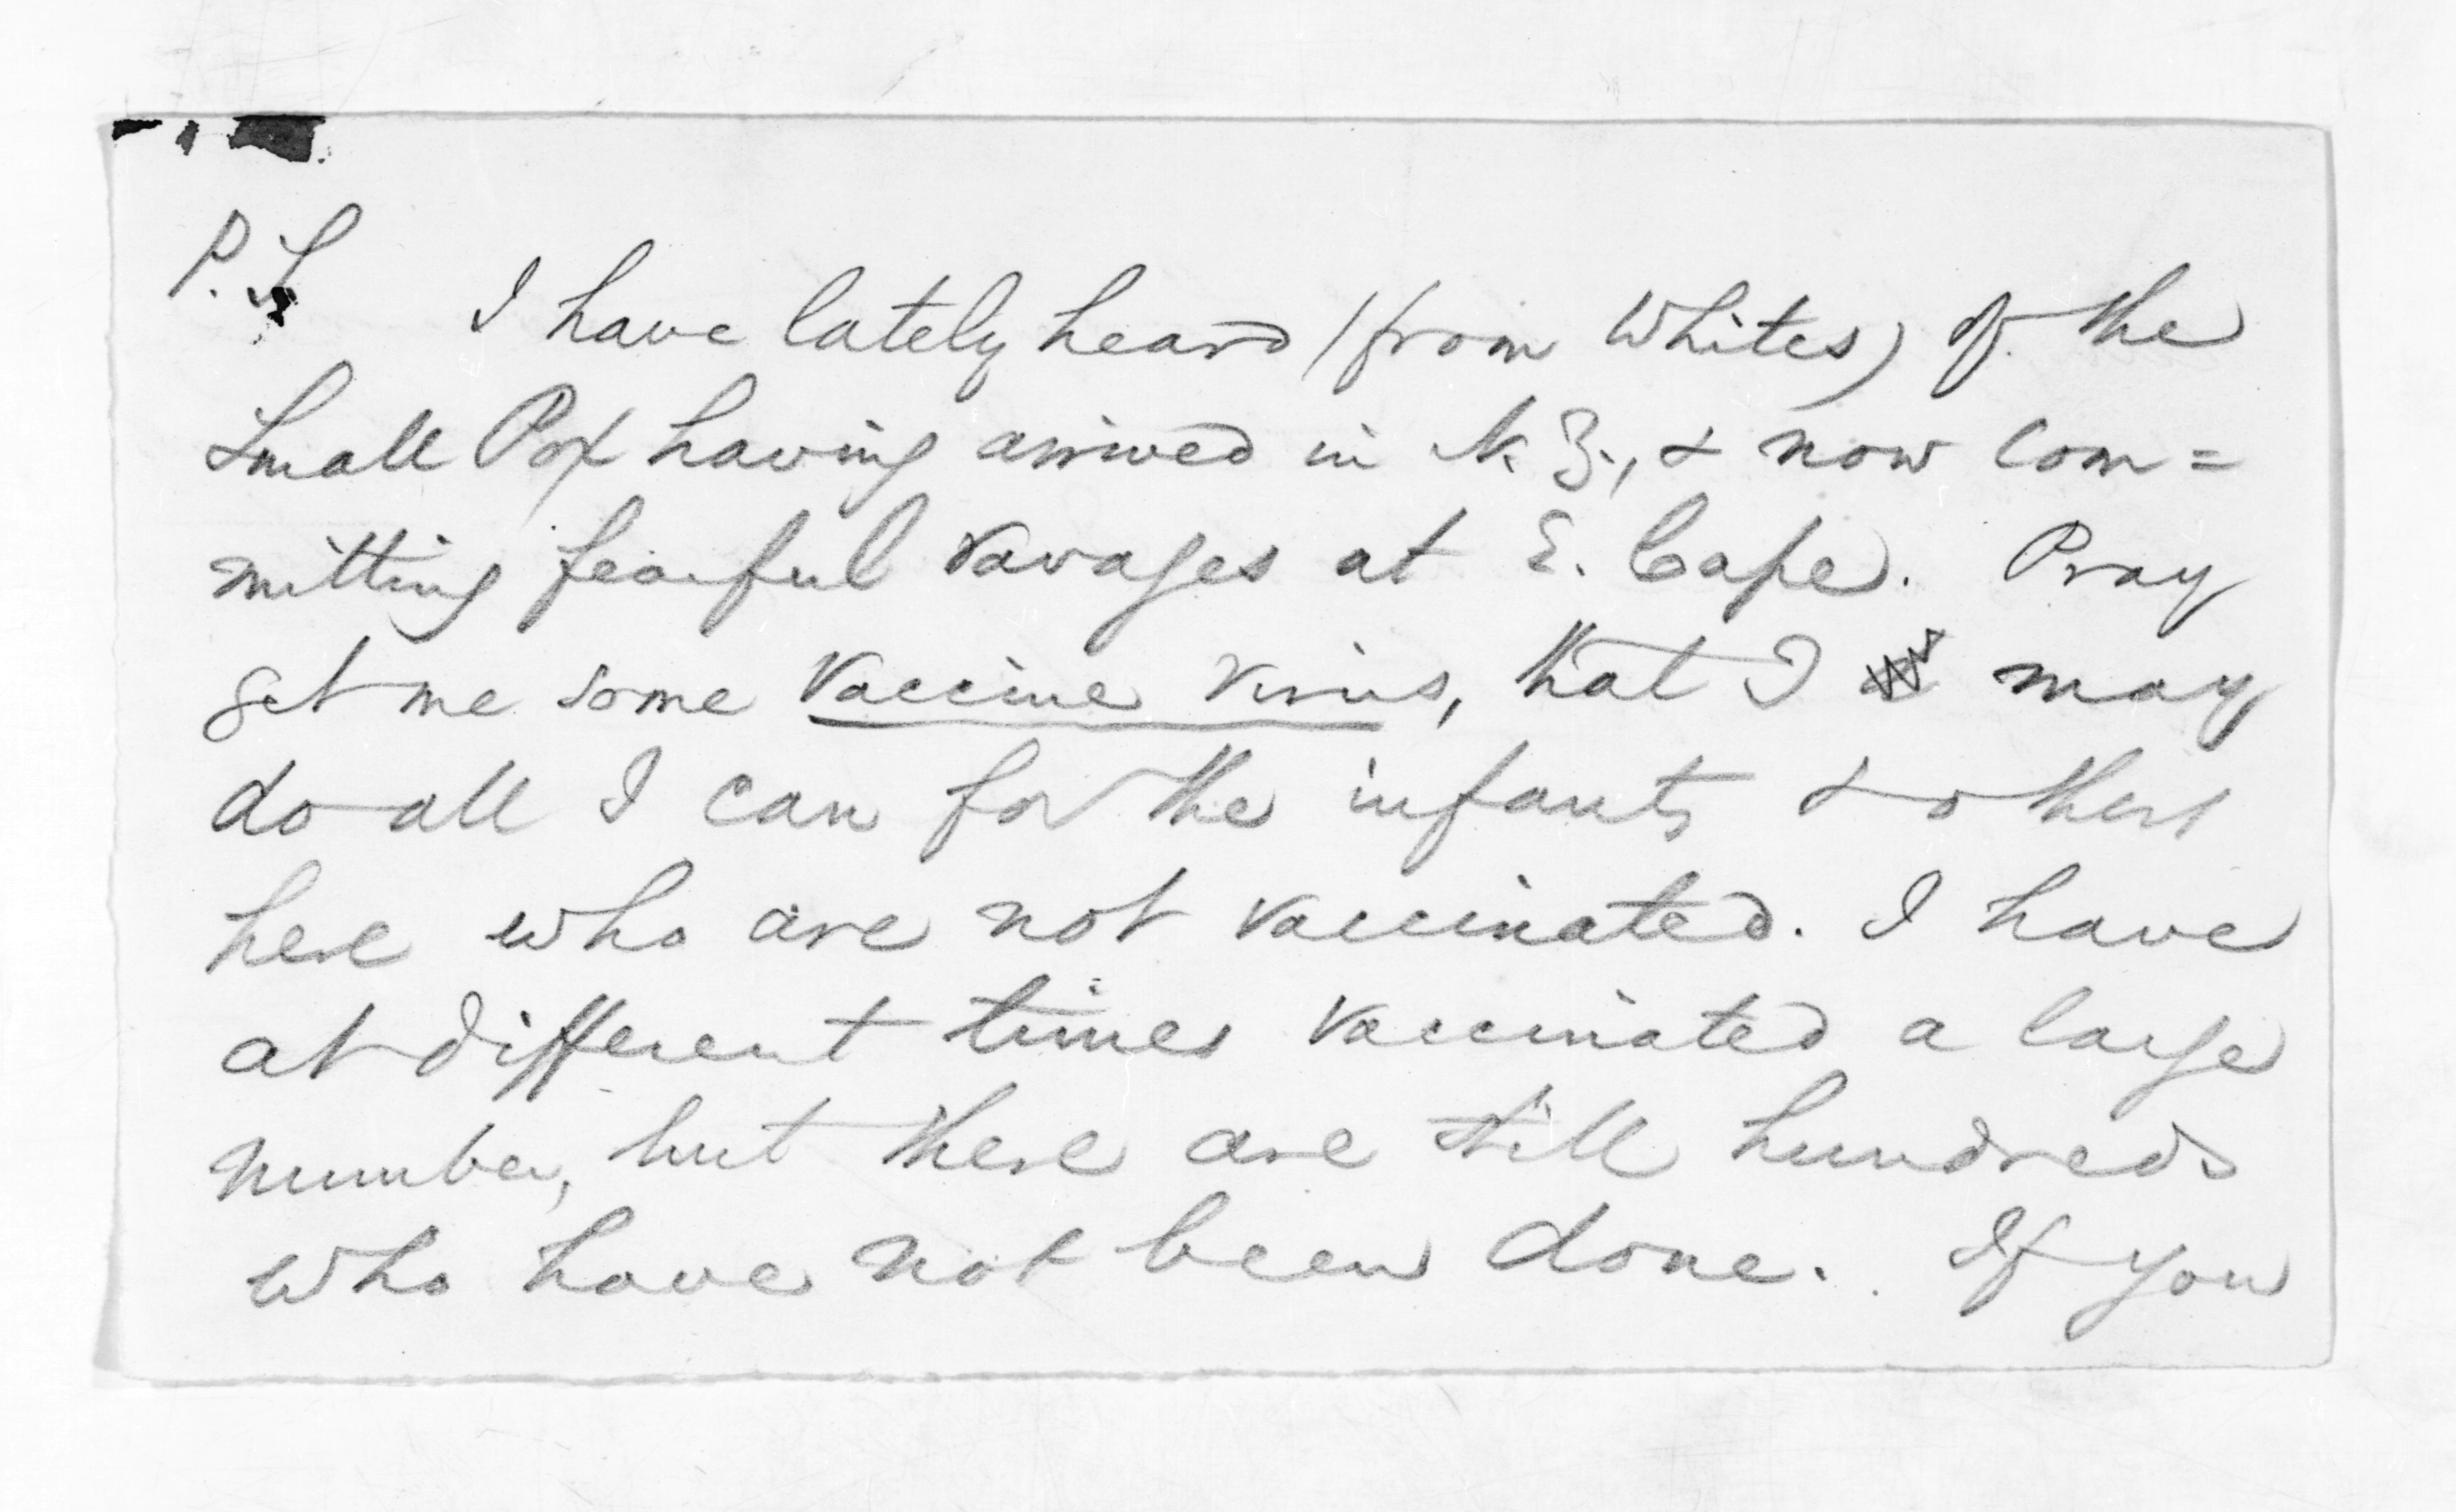 P.S. I have lately heard (from Whites) of the
Small Pox having arrived in N. Z., & now com=
mitting fearful ravages at E. Cape. Pray
get me some Vaccine virus, that I may
do all I can for the infants & others
here who are not vaccinated. I have
at different times vaccinated a large
number, but there are still hundreds
who have not been done. If you